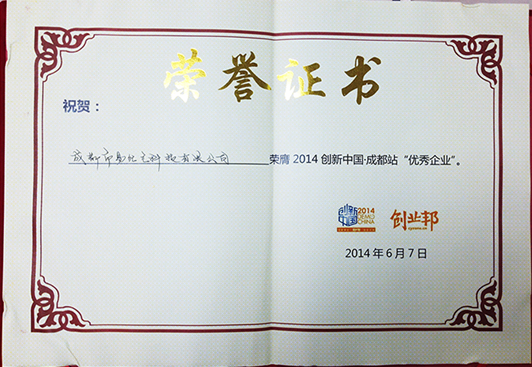 荣誉证书
祝贺：
成都市易亿元科技有限公司 荣膺 2014 创新中国·成都站“优秀企业”。
创新中国 2014 DEMO CHINA 创业邦
2014 年 6 月 7 日